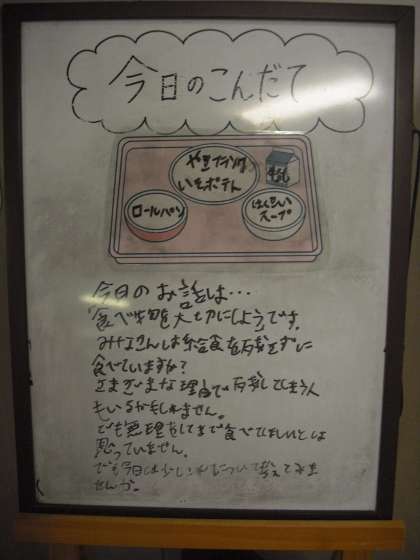 今日のこんだて
やきフランク
いそポテト
牛乳
ロールパン
はくさい
スープ
今日のお話は…
食べ物を大切にしようです。
みなさんは給食を残さずに
食べていますか?
さまざまな理由で残してしまう人
もいるかもしれません。
でも無理をしてまで食べてほしいとは
思っていません。
でも今日は少しそれについて考えてみま
せんか。